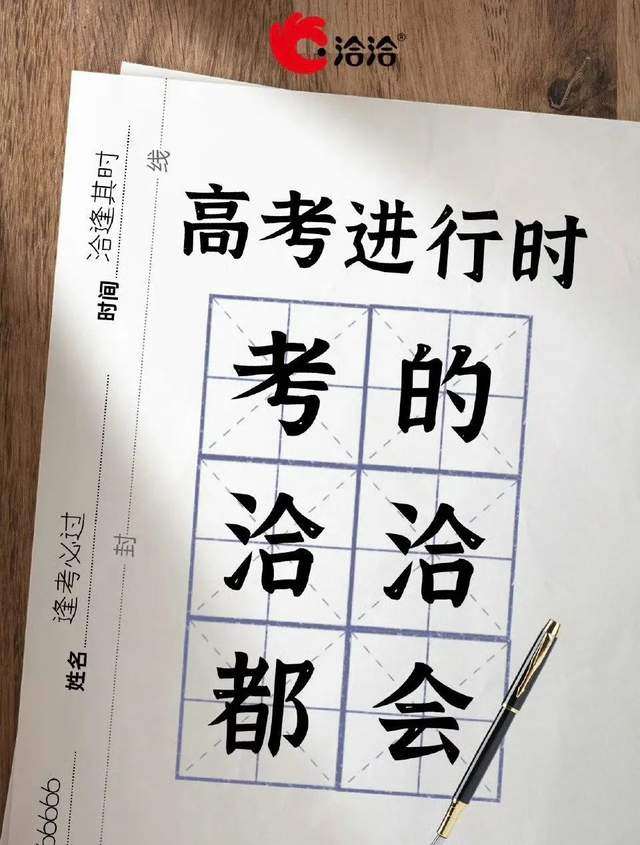 洽洽®
高考进行时
考的
洽洽
都会
时间 洽逢其时
姓名 逢考必过
线
封
66666